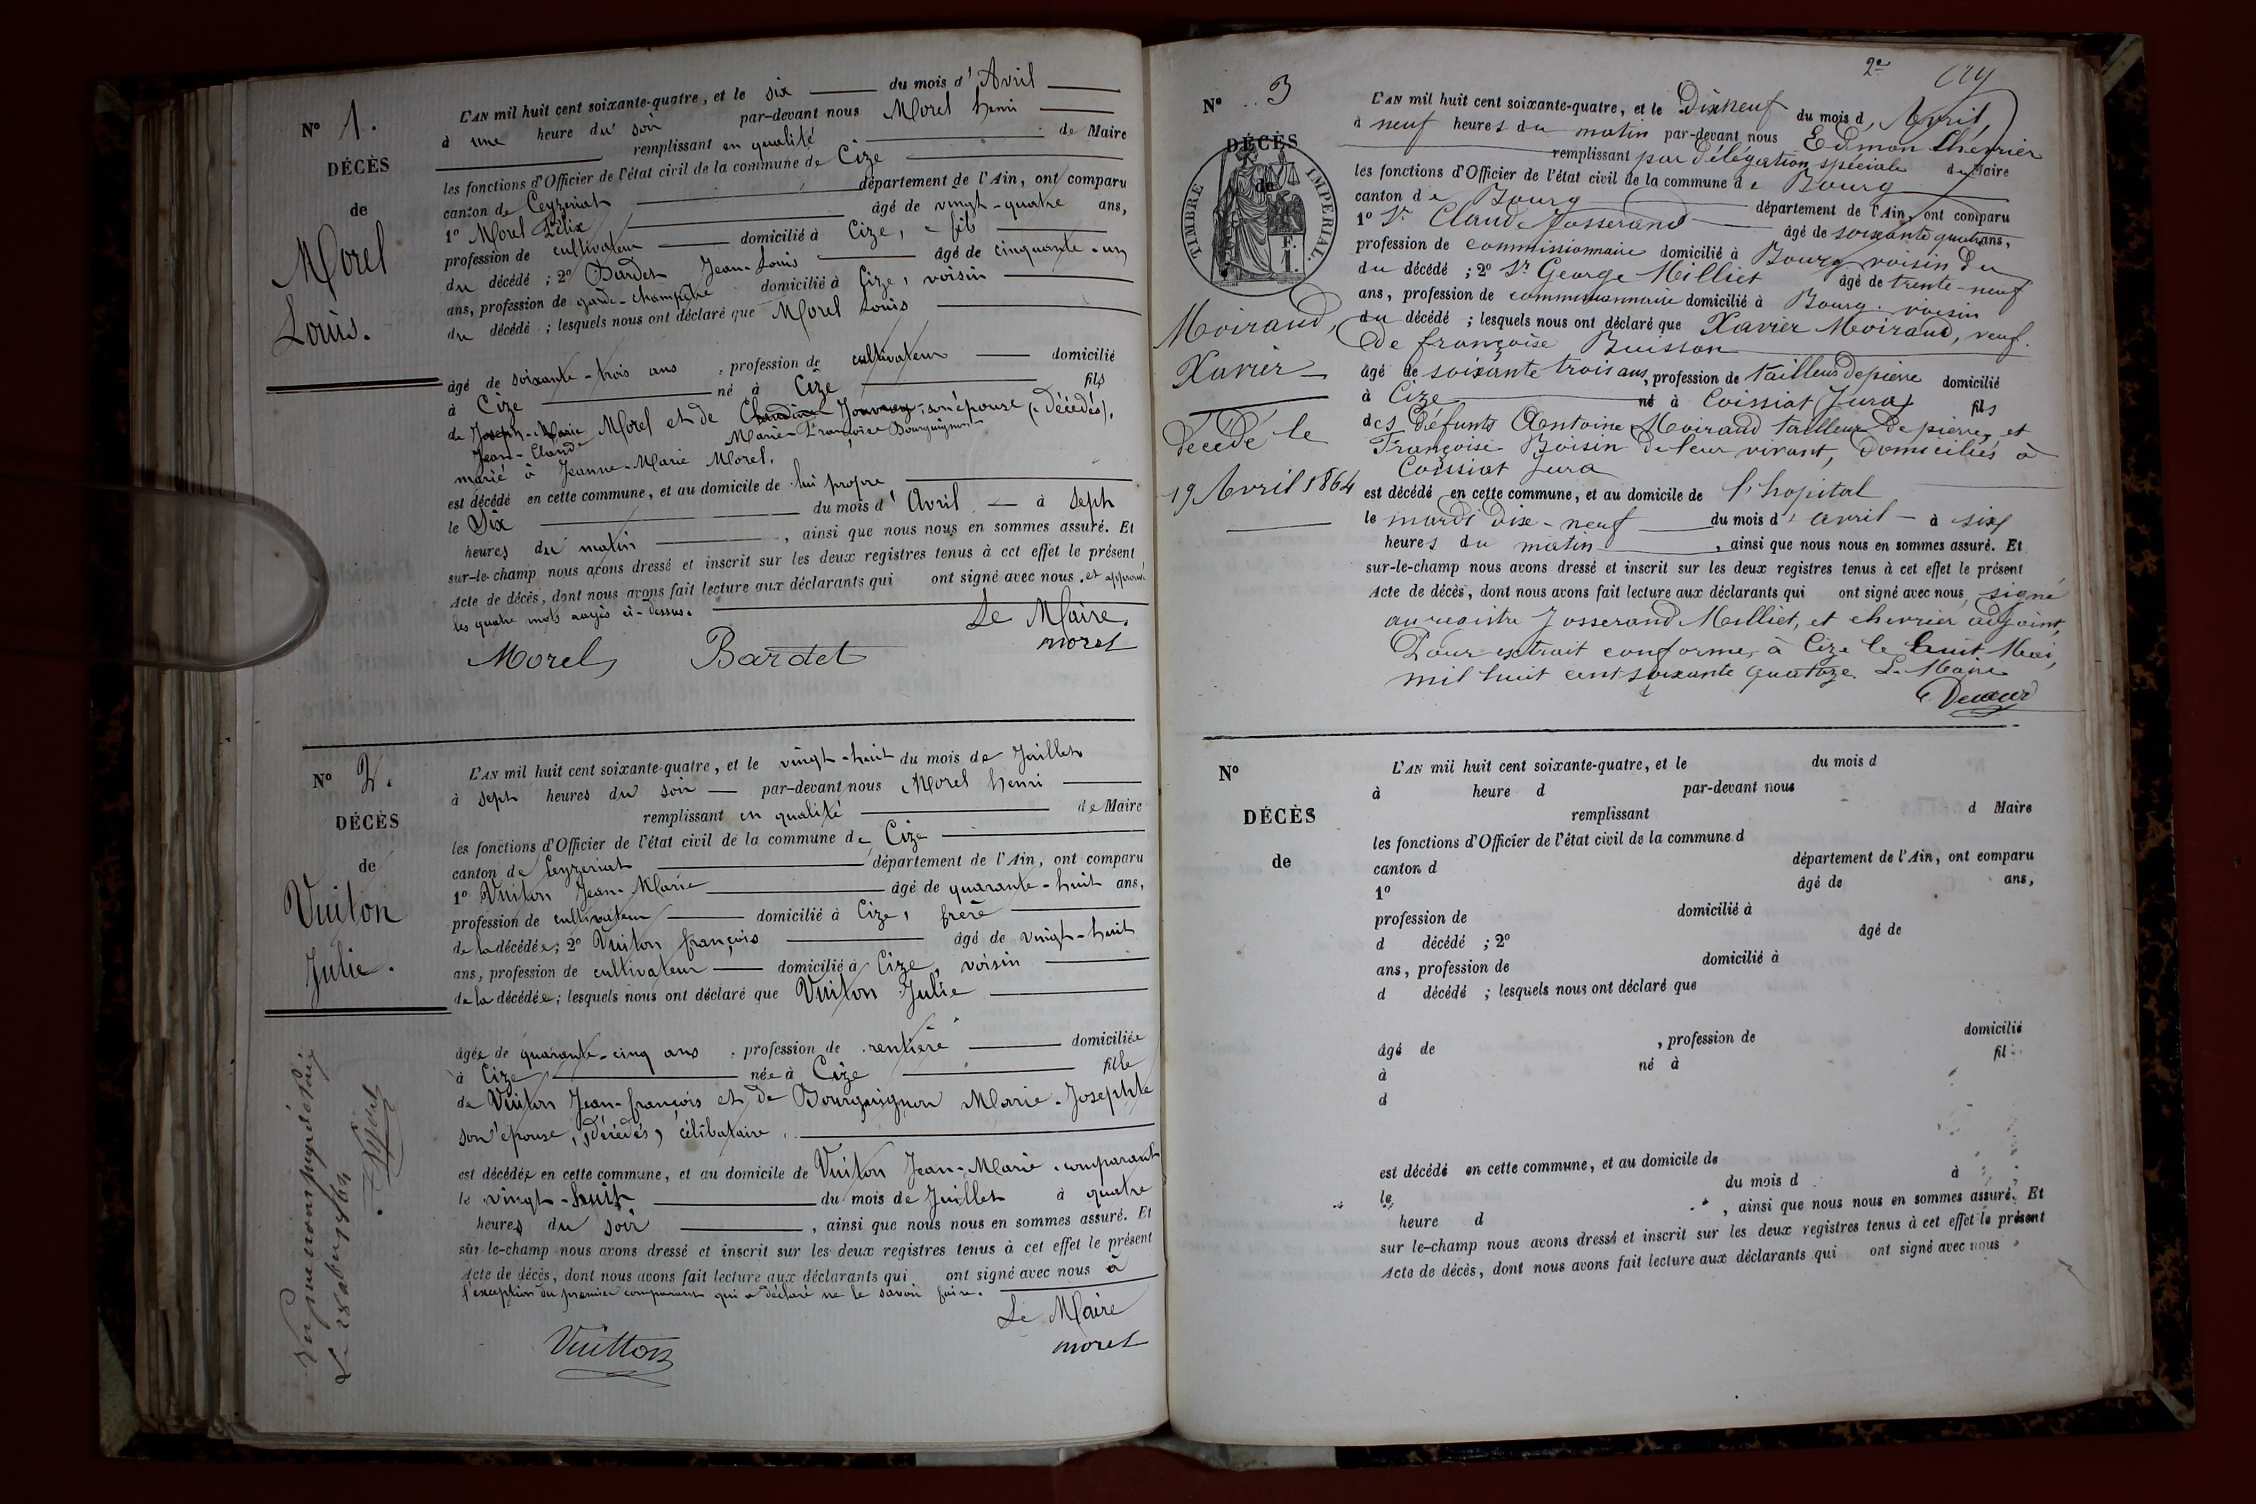 N° 1.
DÉCÈS
de
Morel
Louis.
L'AN mil huit cent soixante-quatre, et le six du mois d'Avril
à une heure du soir par-devant nous Morel henri
remplissant en qualité de Maire
les fonctions d'Officier de l'état civil de la commune de Cize
canton de Ceyzeriat département de l'Ain, ont comparu
1° Morel Félix âgé de vingt-quatre ans,
profession de cultivateur domicilié à Cize, fils
du décédé ; 2° Bardet Jean-Louis âgé de cinquante-un
ans, profession de garde-champêtre domicilié à Cize, voisin
du décédé ; lesquels nous ont déclaré que Morel Louis
âgé de soixante-trois ans, profession de cultivateur domicilié
à Cize né à Cize fils
de Joseph-Marie Morel et de Claudine son épouse (décédés),
Jean-Claude Marie-Françoise Bourguignon
marié à Jeanne-Marie Morel.
est décédé en cette commune, et au domicile de lui propre
le Six du mois d'Avril à Sept
heures du matin, ainsi que nous nous en sommes assuré. Et
sur-le-champ nous avons dressé et inscrit sur les deux registres tenus à cet effet le présent
Acte de décès, dont nous avons fait lecture aux déclarants qui ont signé avec nous. et approuvé
les quatre mots rayés ci-dessus.
Le Maire.
Morel Bardet morel
N° 2.
DÉCÈS
de
Vuiton
Julie.
L'AN mil huit cent soixante-quatre, et le vingt-huit du mois de Juillet
à sept heures du soir par-devant nous Morel henri
remplissant en qualité de Maire
les fonctions d'Officier de l'état civil de la commune de Cize
canton de Ceyzeriat département de l'Ain, ont comparu
1° Vuiton Jean-Marie âgé de quarante-huit ans,
profession de cultivateur domicilié à Cize, frère
de la décédée ; 2° Vuiton françois âgé de vingt-huit
ans, profession de cultivateur domicilié à Cize, voisin
de la décédée ; lesquels nous ont déclaré que Vuiton Julie
âgée de quarante-cinq ans, profession de rentière domiciliée
à Cize née à Cize fille
de Vuiton Jean-françois et de Bourguignon Marie-Josephte
son épouse, (décédés) célibataire.
est décédée en cette commune, et au domicile de Vuiton Jean-Marie comparant
le vingt-huit du mois de Juillet à quatre
heures du soir, ainsi que nous nous en sommes assuré. Et
sur-le-champ nous avons dressé et inscrit sur les deux registres tenus à cet effet le présent
Acte de décès, dont nous avons fait lecture aux déclarants qui ont signé avec nous à
l'exception du premier comparant qui a déclaré ne le savoir faire.
Le Maire
Vuitton morel
2e
N° 3
DÉCÈS
de
TIMBRE IMPÉRIAL.
Moirand
Xavier
décédé le
19 Avril 1864
L'AN mil huit cent soixante-quatre, et le Dixneuf du mois d'Avril,
à neuf heures du matin par-devant nous Edmon Chevrier
remplissant par délégation spéciale du Maire
les fonctions d'Officier de l'état civil de la commune de Bourg
canton de Bourg département de l'Ain, ont comparu
1° Sr Claude Josserand âgé de soixante quatre ans,
profession de commissionnaire domicilié à Bourg voisin du
du décédé ; 2° Sr George Milliet âgé de trente-neuf
ans, profession de commissionnaire domicilié à Bourg. voisin
du décédé ; lesquels nous ont déclaré que Xavier Moirand, veuf
De françoise Buisson
âgé de soixante trois ans, profession de tailleur de pierre domicilié
à Cize né à Coissiat Jura, fils
des défunts Antoine Moirand tailleur de pierre, et
Françoise Boisin de leur vivant, domiciliés à
Coissiat Jura
est décédé en cette commune, et au domicile de l'hopital
le mardi dix-neuf du mois d'avril à six
heures du matin, ainsi que nous nous en sommes assuré. Et
sur-le-champ nous avons dressé et inscrit sur les deux registres tenus à cet effet le présent
Acte de décès, dont nous avons fait lecture aux déclarants qui ont signé avec nous, signé
au registre Josserand Milliet, et chevrier adjoint,
Pour extrait conforme, à Cize le huit Mai,
mil huit cent soixante quatoze. Le Maire
N°
DÉCÈS
de
L'AN mil huit cent soixante-quatre, et le du mois d
à heure d par-devant nous
remplissant d Maire
les fonctions d'Officier de l'état civil de la commune d
canton d département de l'Ain, ont comparu
1° âgé de ans,
profession de domicilié à
d décédé ; 2° âgé de
ans, profession de domicilié à
d décédé ; lesquels nous ont déclaré que
âgé de , profession de domicilié
à né à fil
d
est décédé en cette commune, et au domicile de
le du mois d à
heure d , ainsi que nous nous en sommes assuré. Et
sur le-champ nous avons dressé et inscrit sur les deux registres tenus à cet effet le présent
Acte de décès, dont nous avons fait lecture aux déclarants qui ont signé avec nous